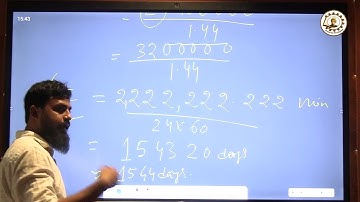 15:43
1.44
= 3200000
1.44
= 2222,222.222 min
24x60
= 1543 20 days
1544 days.